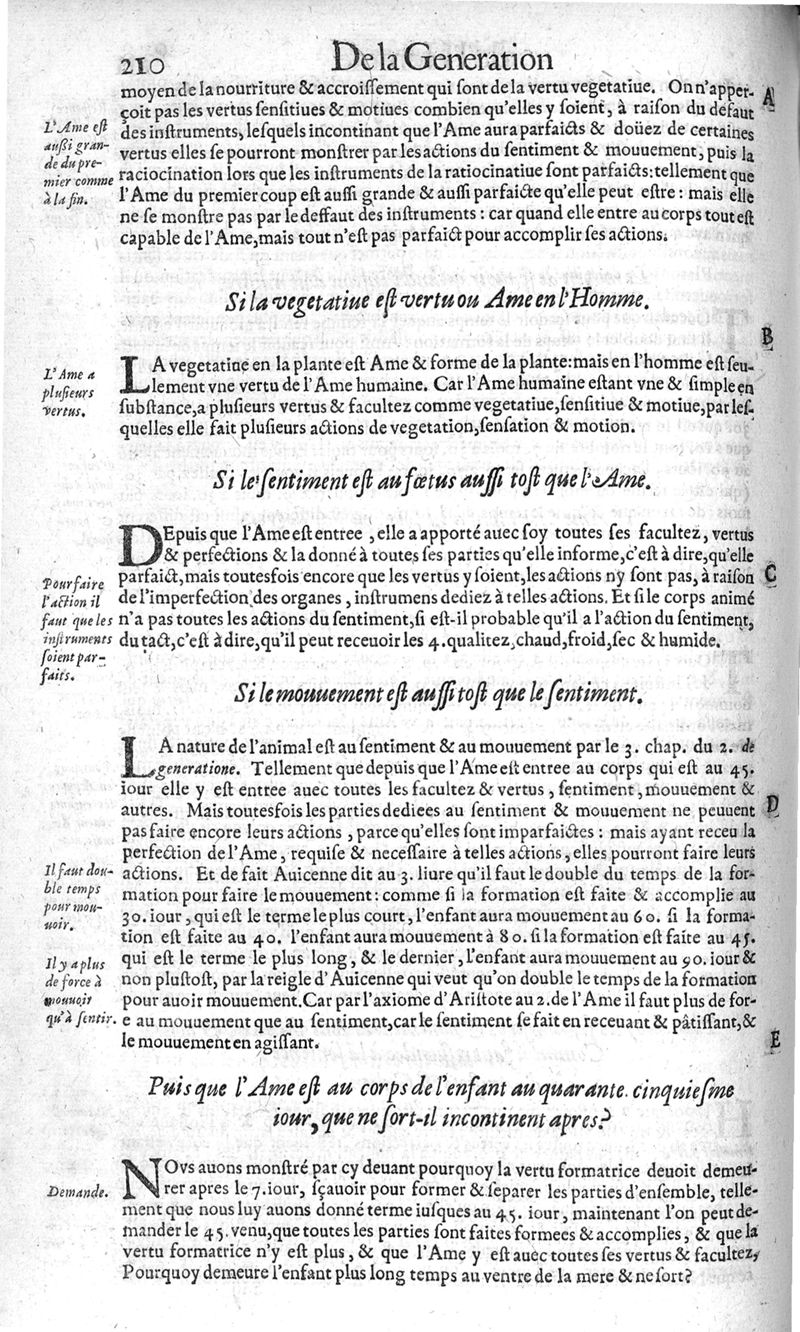 210 De la Generation
moyen de la nourriture & accroiſſement qui ſont de la vertu vegetatiue. On n'apper-
çoit pas les vertus ſenſitiues & motiues combien qu'elles y ſoient, à raiſon du defaut
des inſtruments, leſquels incontinant que l'Ame aura parfaicts & doüez de certaines
vertus elles ſe pourront monſtrer par les actions du ſentiment & mouuement, puis la
raciocination lors que les inſtruments de la ratiocinatiue ſont parfaicts: tellement que
l'Ame du premier coup eſt auſſi grande & auſſi parfaicte qu'elle peut eſtre: mais elle
ne ſe monſtre pas par le deffaut des inſtruments: car quand elle entre au corps tout eſt
capable de l'Ame, mais tout n'eſt pas parfaict pour accomplir ſes actions.
A
L'Ame eſt
auſſi gran-
de du pre-
mier comme
à la fin.
Si la vegetatiue eſt vertu ou Ame en l'Homme.
B
LA vegetatiue en la plante eſt Ame & forme de la plante: mais en l'homme eſt ſeu-
lement vne vertu de l'Ame humaine. Car l'Ame humaine eſtant vne & ſimple en
ſubſtance, a pluſieurs vertus & facultez comme vegetatiue, ſenſitiue & motiue, par leſ-
quelles elle fait pluſieurs actions de vegetation, ſenſation & motion.
L'Ame a
pluſieurs
vertus.
Si le ſentiment eſt au fœtus auſſi toſt que l'Ame.
DEpuis que l'Ame eſt entree, elle a apporté auec ſoy toutes ſes facultez, vertus
& perfections & la donné à toutes ſes parties qu'elle informe, c'eſt à dire, qu'elle
parfaict, mais toutesfois encore que les vertus y ſoient, les actions n'y ſont pas, à raiſon
de l'imperfection des organes, inſtrumens dediez à telles actions. Et ſi le corps animé
n'a pas toutes les actions du ſentiment, ſi eſt-il probable qu'il a l'action du ſentiment,
du tact, c'eſt à dire, qu'il peut receuoir les 4. qualitez, chaud, froid, ſec & humide.
C
Pour faire
l'action il
faut que les
inſtruments
ſoient par-
faits.
Si le mouuement eſt auſſi toſt que le ſentiment.
LA nature de l'animal eſt au ſentiment & au mouuement par le 3. chap. du 2. de
generatione. Tellement que depuis que l'Ame eſt entree au corps qui eſt au 45.
iour elle y eſt entree auec toutes les facultez & vertus, ſentiment, mouuement &
autres. Mais toutesfois les parties dediees au ſentiment & mouuement ne peuuent
pas faire encore leurs actions, parce qu'elles ſont imparfaictes: mais ayant receu la
perfection de l'Ame, requiſe & neceſſaire à telles actions, elles pourront faire leurs
actions. Et de fait Auicenne dit au 3. liure qu'il faut le double du temps de la for-
mation pour faire le mouuement: comme ſi la formation eſt faite & accomplie au
30. iour, qui eſt le terme le plus court, l'enfant aura mouuement au 60. ſi la forma-
tion eſt faite au 40. l'enfant aura mouuement à 80. ſi la formation eſt faite au 45.
qui eſt le terme le plus long, & le dernier, l'enfant aura mouuement au 90. iour &
non pluſtoſt, par la reigle d'Auicenne qui veut qu'on double le temps de la formation
pour auoir mouuement. Car par l'axiome d'Ariſtote au 2. de l'Ame il faut plus de for-
e au mouuement que au ſentiment, car le ſentiment ſe fait en receuant & pâtiſſant, &
le mouuement en agiſſant.
D
Il faut dou-
ble temps
pour mou-
uoir.
Il y a plus
de force à
mouuoir
qu'à ſentir.
E
Puis que l'Ame eſt au corps de l'enfant au quarante. cinquieſme
iour, que ne ſort-il incontinent apres?
NOvs auons monſtré par cy deuant pourquoy la vertu formatrice deuoit demeu-
rer apres le 7. iour, ſçauoir pour former & ſeparer les parties d'enſemble, telle-
ment que nous luy auons donné terme iuſques au 45. iour, maintenant l'on peut de-
mander le 45. venu, que toutes les parties ſont faites formees & accomplies, & que la
vertu formatrice n'y eſt plus, & que l'Ame y eſt auec toutes ſes vertus & facultez,
Pourquoy demeure l'enfant plus long temps au ventre de la mere & ne ſort?
Demande.